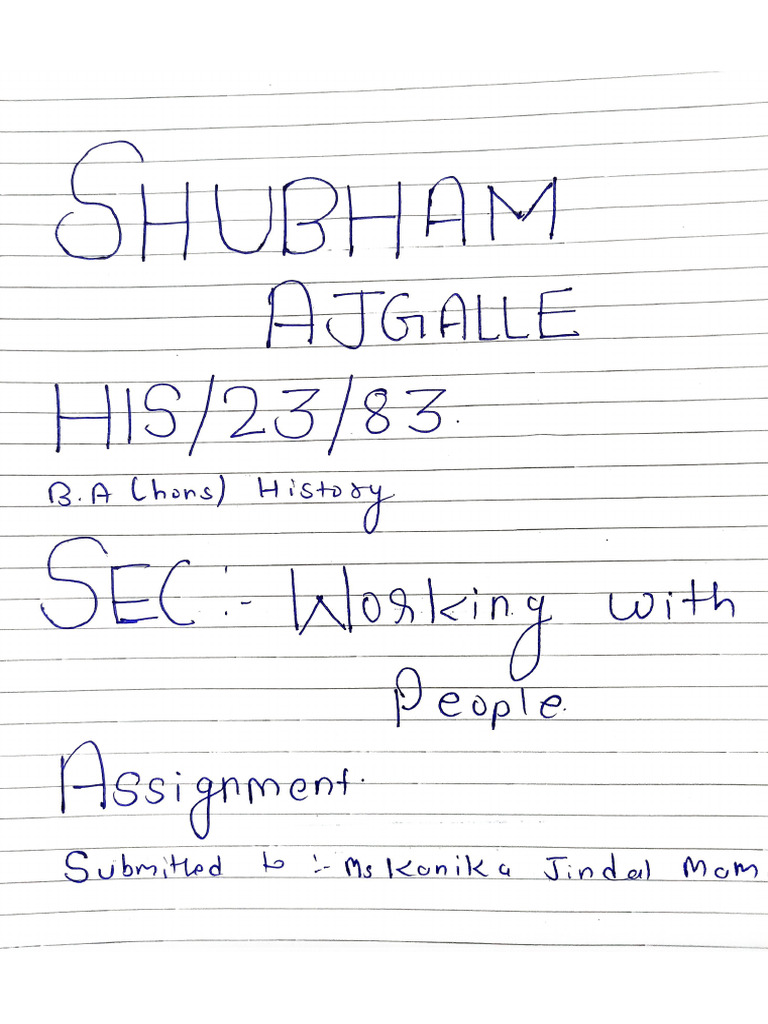 SHUBHAM
AJGALLE
HIS/23/83.
B.A (hons) History
SEC :- Working with
People.
Assignment.
Submitted to :- Ms Kanika Jindal Mam